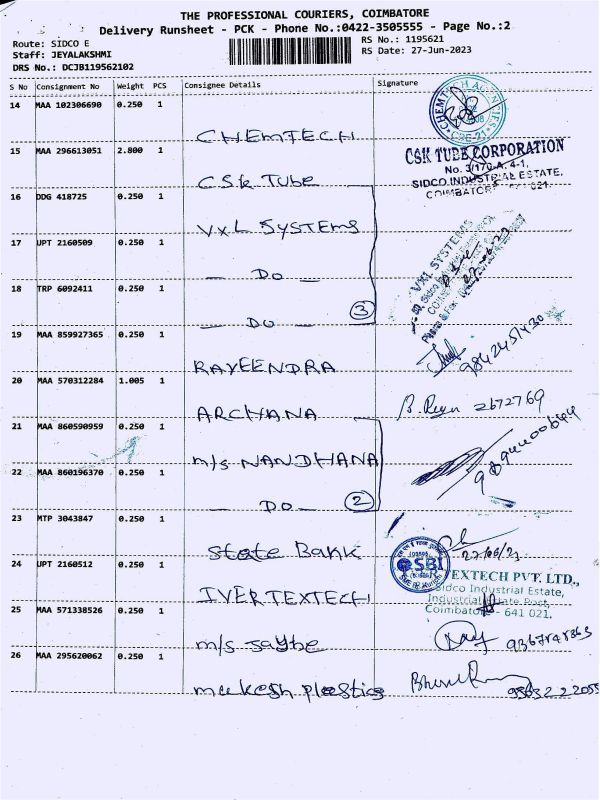 THE PROFESSIONAL COURIERS, COIMBATORE
Delivery Runsheet - PCK - Phone No.:0422-3505555 - Page No.:2
Route: SIDCO E
RS No.: 1195621
Staff: JEYALAKSHMI
RS Date: 27-Jun-2023
DRS No.: DCJB119562102
S No Consignment No Weight PCS Consignee Details Signature
14 MAA 102306690 0.250 1
CHEMTECH
CHEMTECH AGENCIES
CBE-21
15 MAA 296613051 2.800 1
CSK Tube
CSK TUBE CORPORATION
No. 3/170-A, 4-1,
SIDCO INDUSTRIAL ESTATE,
COIMBATORE 021.
16 DDG 418725 0.250 1
VXL SYSTEMS
VXL SYSTEMS
17 UPT 2160509 0.250 1
— DO —
18 TRP 6092411 0.250 1
— DO — 3
19 MAA 859927365 0.250 1
RAVEENDRA
9842451430
20 MAA 570312284 1.005 1
ARCHANA
2672769
21 MAA 860590959 0.250 1
M/s NANDHANA
22 MAA 860196370 0.250 1
— DO — 2
23 MTP 3043847 0.250 1
State Bank
SBI
27/06/23
24 UPT 2160512 0.250 1
IVERTEXTECH
EXTECH PVT. LTD.,
Sidco Industrial Estate,
Industrial Estate Post,
Coimbatore - 641 021.
25 MAA 571338526 0.250 1
m/s
26 MAA 295620062 0.250 1
mukesh plastics